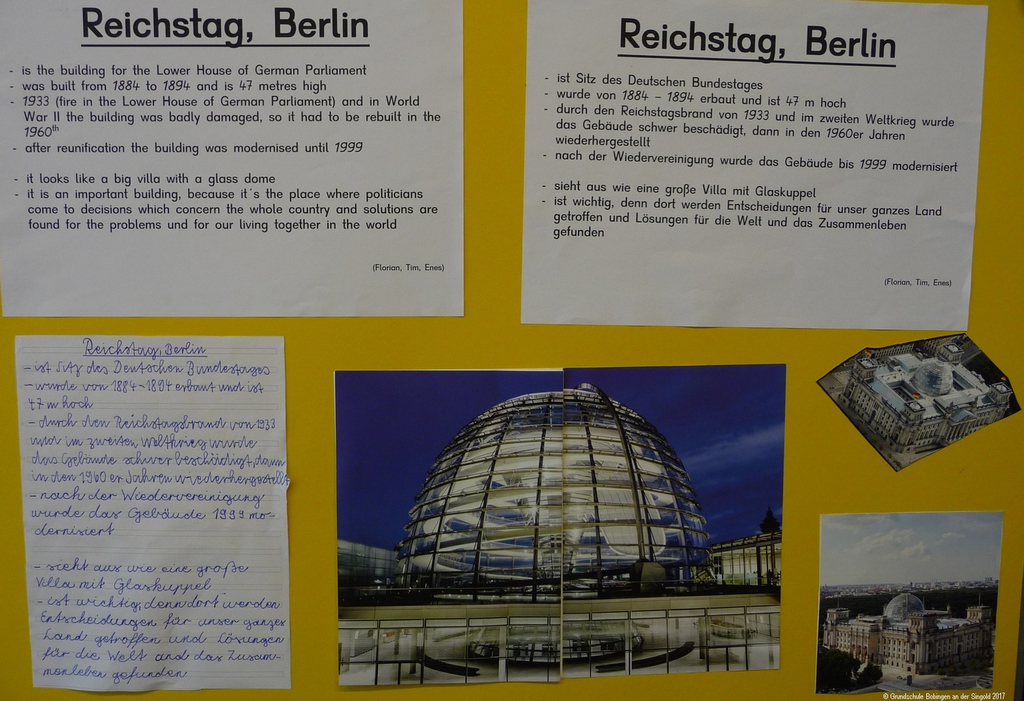 Reichstag, Berlin
- is the building for the Lower House of German Parliament
- was built from 1884 to 1894 and is 47 metres high
- 1933 (fire in the Lower House of German Parliament) and in World
War II the building was badly damaged, so it had to be rebuilt in the
1960th
- after reunification the building was modernised until 1999
- it looks like a big villa with a glass dome
- it is an important building, because it´s the place where politicians
come to decisions which concern the whole country and solutions are
found for the problems und for our living together in the world
(Florian, Tim, Enes)
Reichstag, Berlin
- ist Sitz des Deutschen Bundestages
- wurde von 1884 – 1894 erbaut und ist 47 m hoch
- durch den Reichstagsbrand von 1933 und im zweiten Weltkrieg wurde
das Gebäude schwer beschädigt, dann in den 1960er Jahren
wiederhergestellt
- nach der Wiedervereinigung wurde das Gebäude bis 1999 modernisiert
- sieht aus wie eine große Villa mit Glaskuppel
- ist wichtig, denn dort werden Entscheidungen für unser ganzes Land
getroffen und Lösungen für die Welt und das Zusammenleben
gefunden
(Florian, Tim, Enes)
Reichstag, Berlin
- ist Sitz des Deutschen Bundestages
- wurde von 1884-1894 erbaut und ist
47 m hoch
- durch den Reichstagsbrand von 1933
und im zweiten Weltkrieg wurde
das Gebäude schwer beschädigt, dann
in den 1960er Jahren wiederhergestellt
- nach der Wiedervereinigung
wurde das Gebäude 1999 mo-
dernisiert
- sieht aus wie eine große
Villa mit Glaskuppel
- ist wichtig, denn dort werden
Entscheidungen für unser ganzes
Land getroffen und Lösungen
für die Welt und das Zusam-
menleben gefunden
© Grundschule Bobingen an der Singold 2017